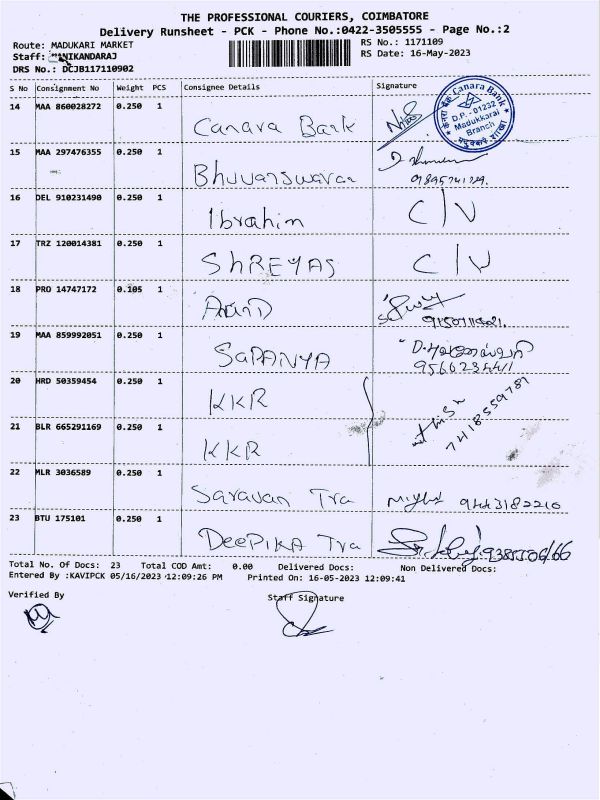 THE PROFESSIONAL COURIERS, COIMBATORE
Delivery Runsheet - PCK - Phone No.:0422-3505555 - Page No.:2
Route: MADUKARI MARKET
RS No.: 1171109
Staff: MANIKANDARAJ
RS Date: 16-May-2023
DRS No.: DCJB117110902
S No Consignment No Weight PCS Consignee Details Signature
14 MAA 860028272 0.250 1 Canara Bank
केनरा बैंक Canara Bank
D.P. - 01232
Madukkarai
Branch
15 MAA 297476355 0.250 1 Bhuvanswaran
16 DEL 910231490 0.250 1 Ibrahim C/V
17 TRZ 120014381 0.250 1 SHREYAS C/V
18 PRO 14747172 0.105 1
19 MAA 859992051 0.250 1 SARANYA
9566234441
20 HRD 50359454 0.250 1 KKR
21 BLR 665291169 0.250 1 KKR
7418559787
22 MLR 3036589 0.250 1 Saravan Tra 9443182210
23 BTU 175101 0.250 1 DeePIKA Tra
Total No. Of Docs: 23 Total COD Amt: 0.00 Delivered Docs: Non Delivered Docs:
Entered By :KAVIPCK 05/16/2023 12:09:26 PM Printed On: 16-05-2023 12:09:41
Verified By Staff Signature